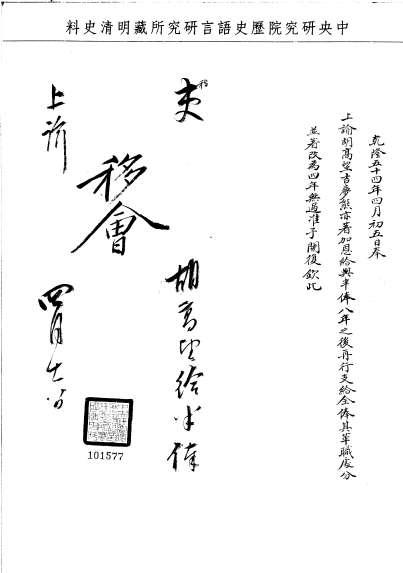 中央研究院歷史語言研究所藏明清史料
乾隆五十四年四月初五日奉
上諭胡高望吉夢熊亦著加恩給與半俸八年之後再行支給全俸其革職處分
並著改為四年無過准予開復欽此
吏
移會
胡高望給半俸
上諭
四月
101577